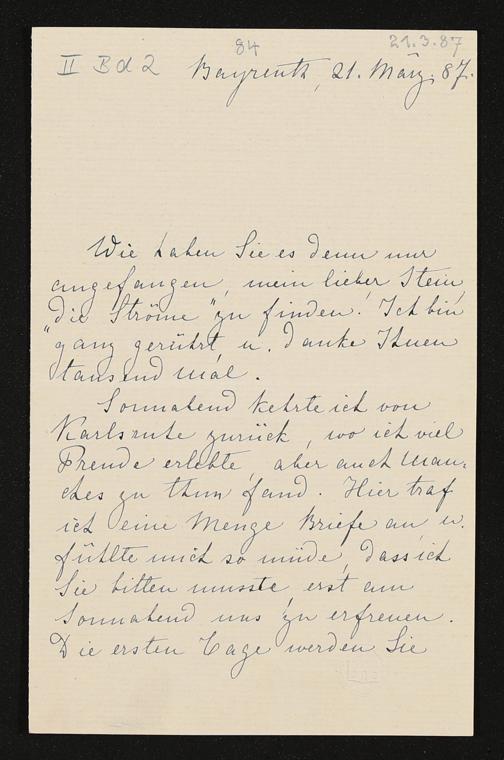 84
21.3.87
II Bd 2 Bayreuth, 21. März. 87.
Wie haben Sie es denn nur
angefangen, mein lieber Stein,
"die Ströme" zu finden! Ich bin
ganz gerührt, u. danke Ihnen
tausend mal.
Sonnabend kehrte ich von
Karlsruhe zurück, wo ich viel
Freude erlebte, aber auch man-
ches zu thun fand. Hier traf
ich eine Menge Briefe an u.
fühlte mich so müde, dass ich
Sie bitten musste, erst am
Sonnabend uns zu erfreuen.
Die ersten Tage werden Sie